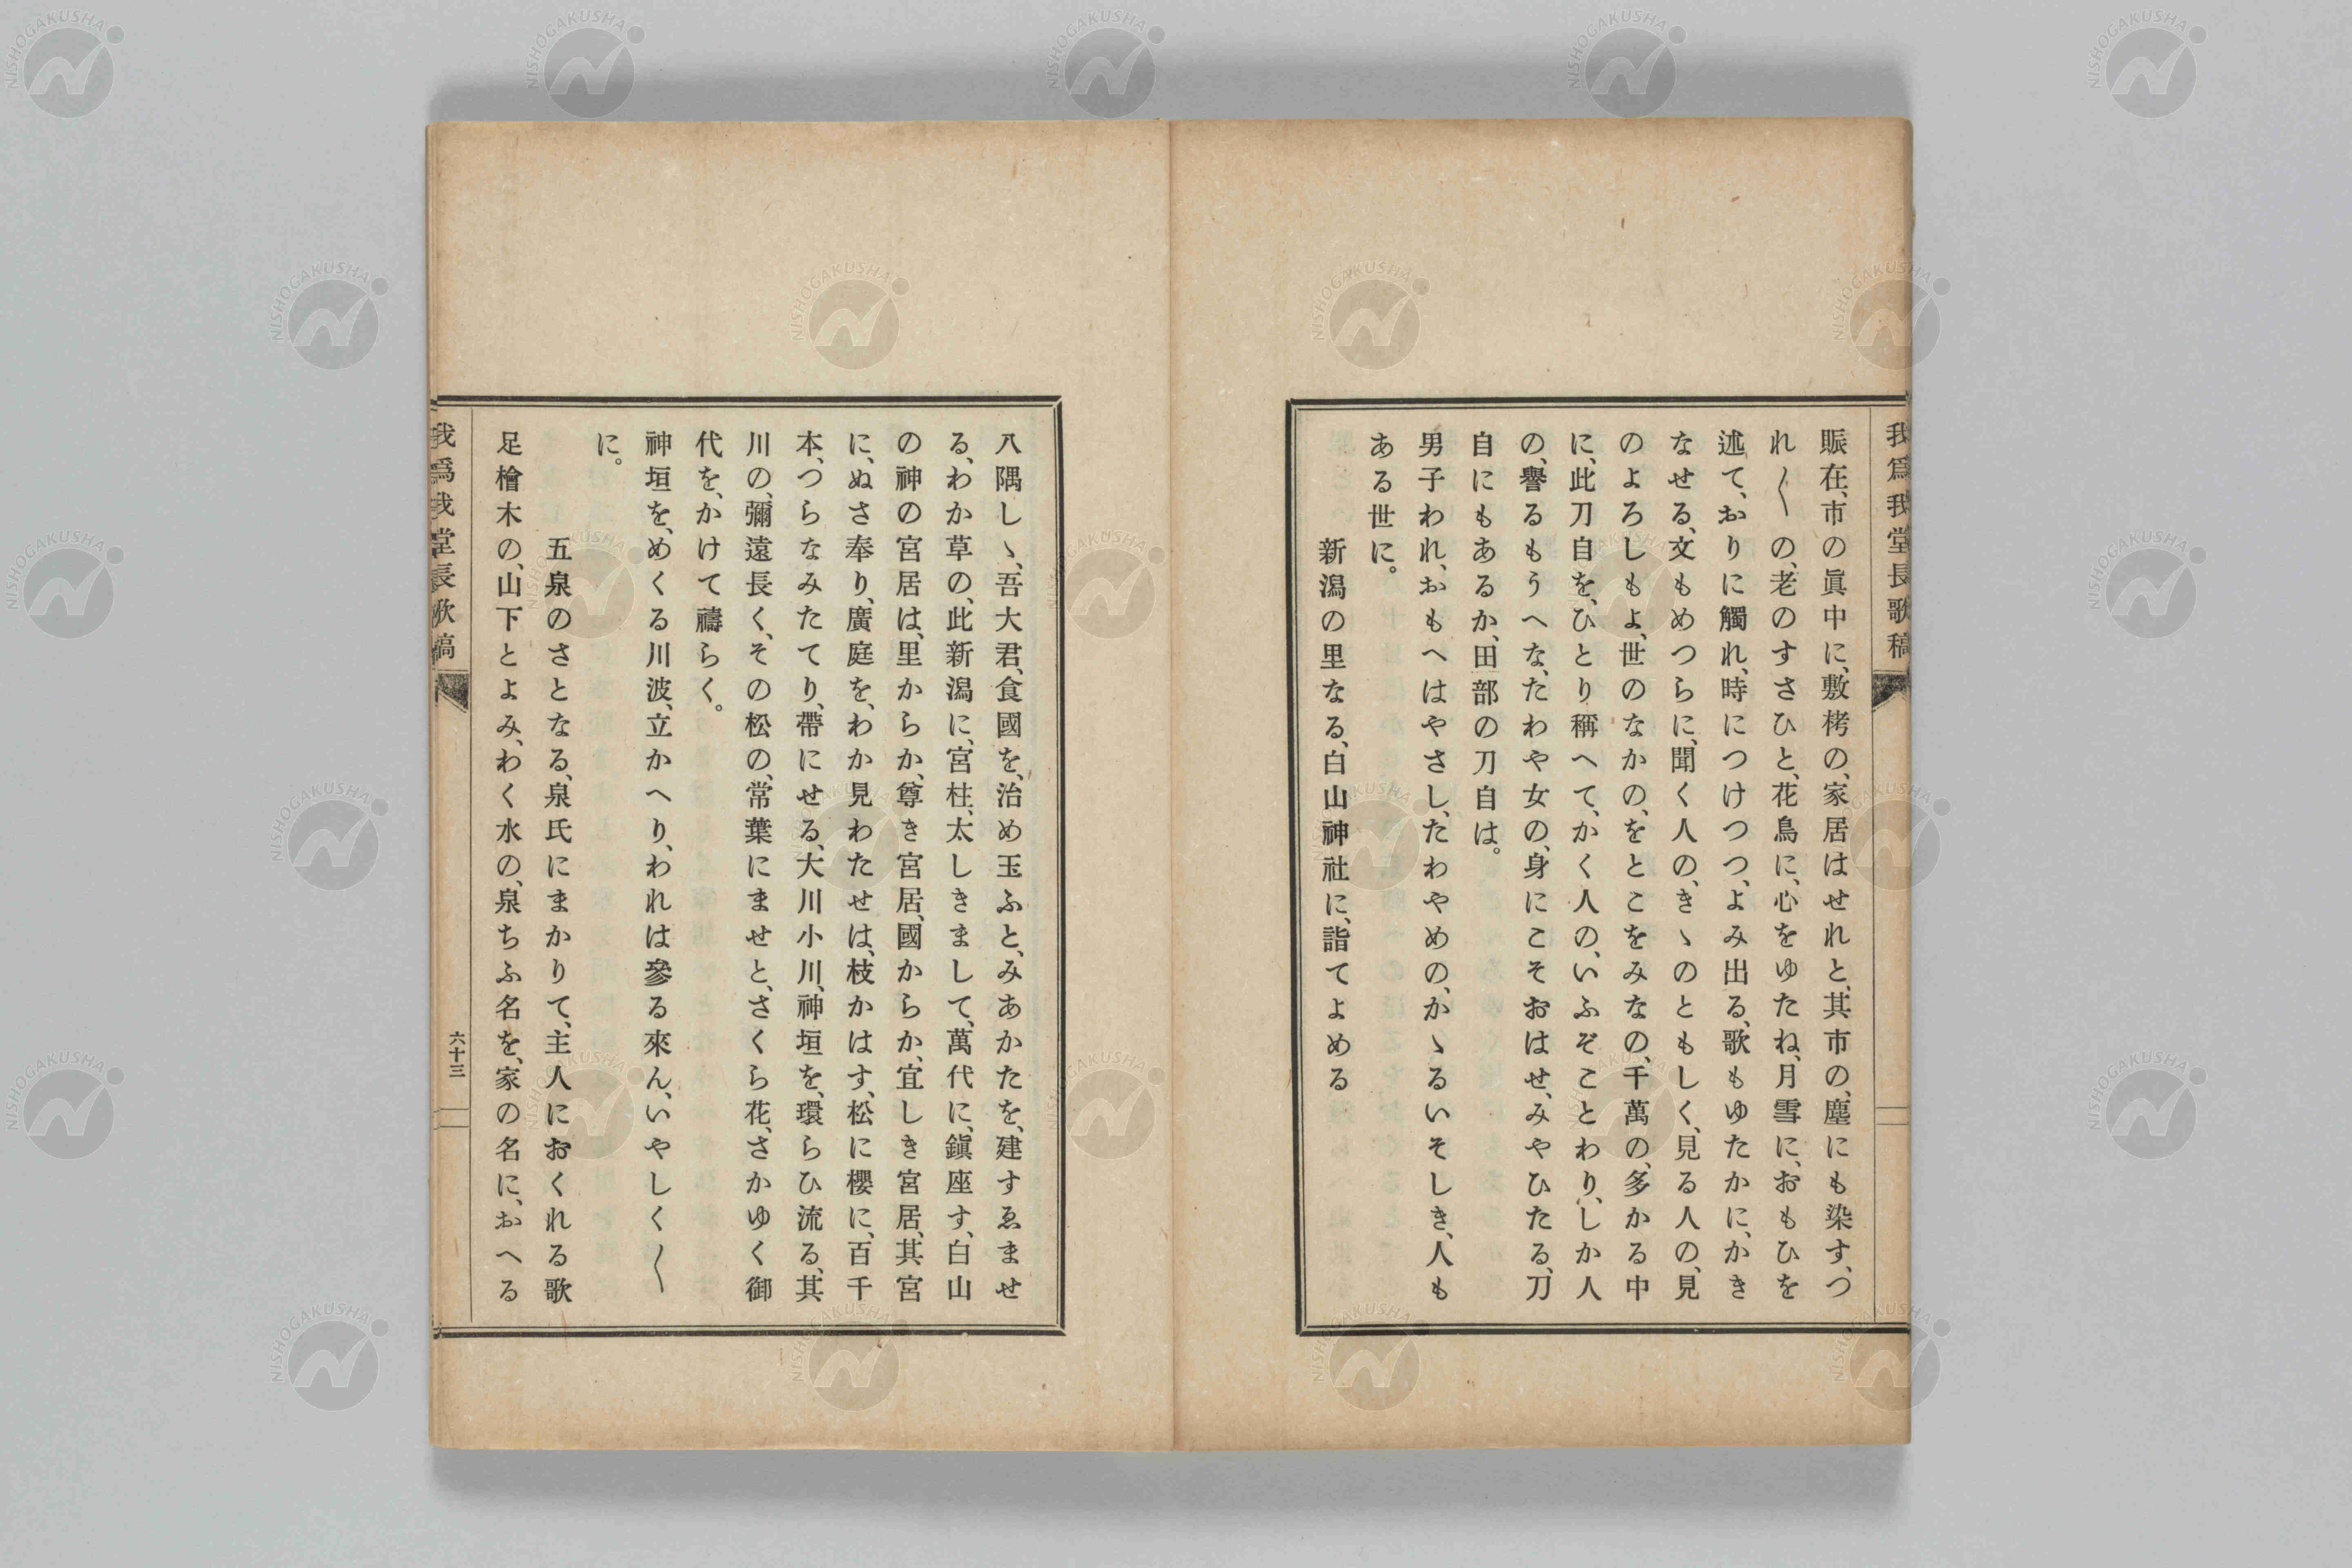 我爲我堂長歌稿
賑在、市の眞中に、敷栲の、家居はせれと、其市の、塵にも染す、つ
れ〱の、老のすさひと、花鳥に、心をゆたね、月雪に、おもひを
述て、おりに觸れ、時につけつつ、よみ出る、歌もゆたかに、かき
なせる、文もめつらに、聞く人の、きゝのともしく、見る人の、見
のよろしもよ、世のなかの、をとこをみなの、千萬の、多かる中
に、此刀自を、ひとり稱へて、かく人の、いふぞことわり、しか人
の、譽るもうへな、たわや女の、身にこそおはせ、みやひたる、刀
自にもあるか、田部の刀自は。
男子われ、おもへはやさし、たわやめの、かゝるいそしき、人も
ある世に。
新潟の里なる、白山神社に、詣てよめる
八隅しゝ、吾大君、食國を、治め玉ふと、みあかたを、建すゑませ
る、わか草の、此新潟に、宮柱、太しきまして、萬代に、鎭座す、白山
の神の宮居は、里からか、尊き宮居、國からか、宜しき宮居、其宮
に、ぬさ奉り、廣庭を、わか見わたせは、枝かはす、松に櫻に、百千
本、つらなみたてり、帶にせる、大川小川、神垣を、環らひ流る、其
川の、彌遠長く、その松の、常葉にませと、さくら花、さかゆく御
代を、かけて禱らく。
神垣を、めくる川波、立かへり、われは參る來ん、いやしく〱
に。
五泉のさとなる、泉氏にまかりて、主人におくれる歌
足檜木の、山下とよみ、わく水の、泉ちふ名を、家の名に、おへる
我爲我堂長歌稿
六十三
NISHOGAKUSHA